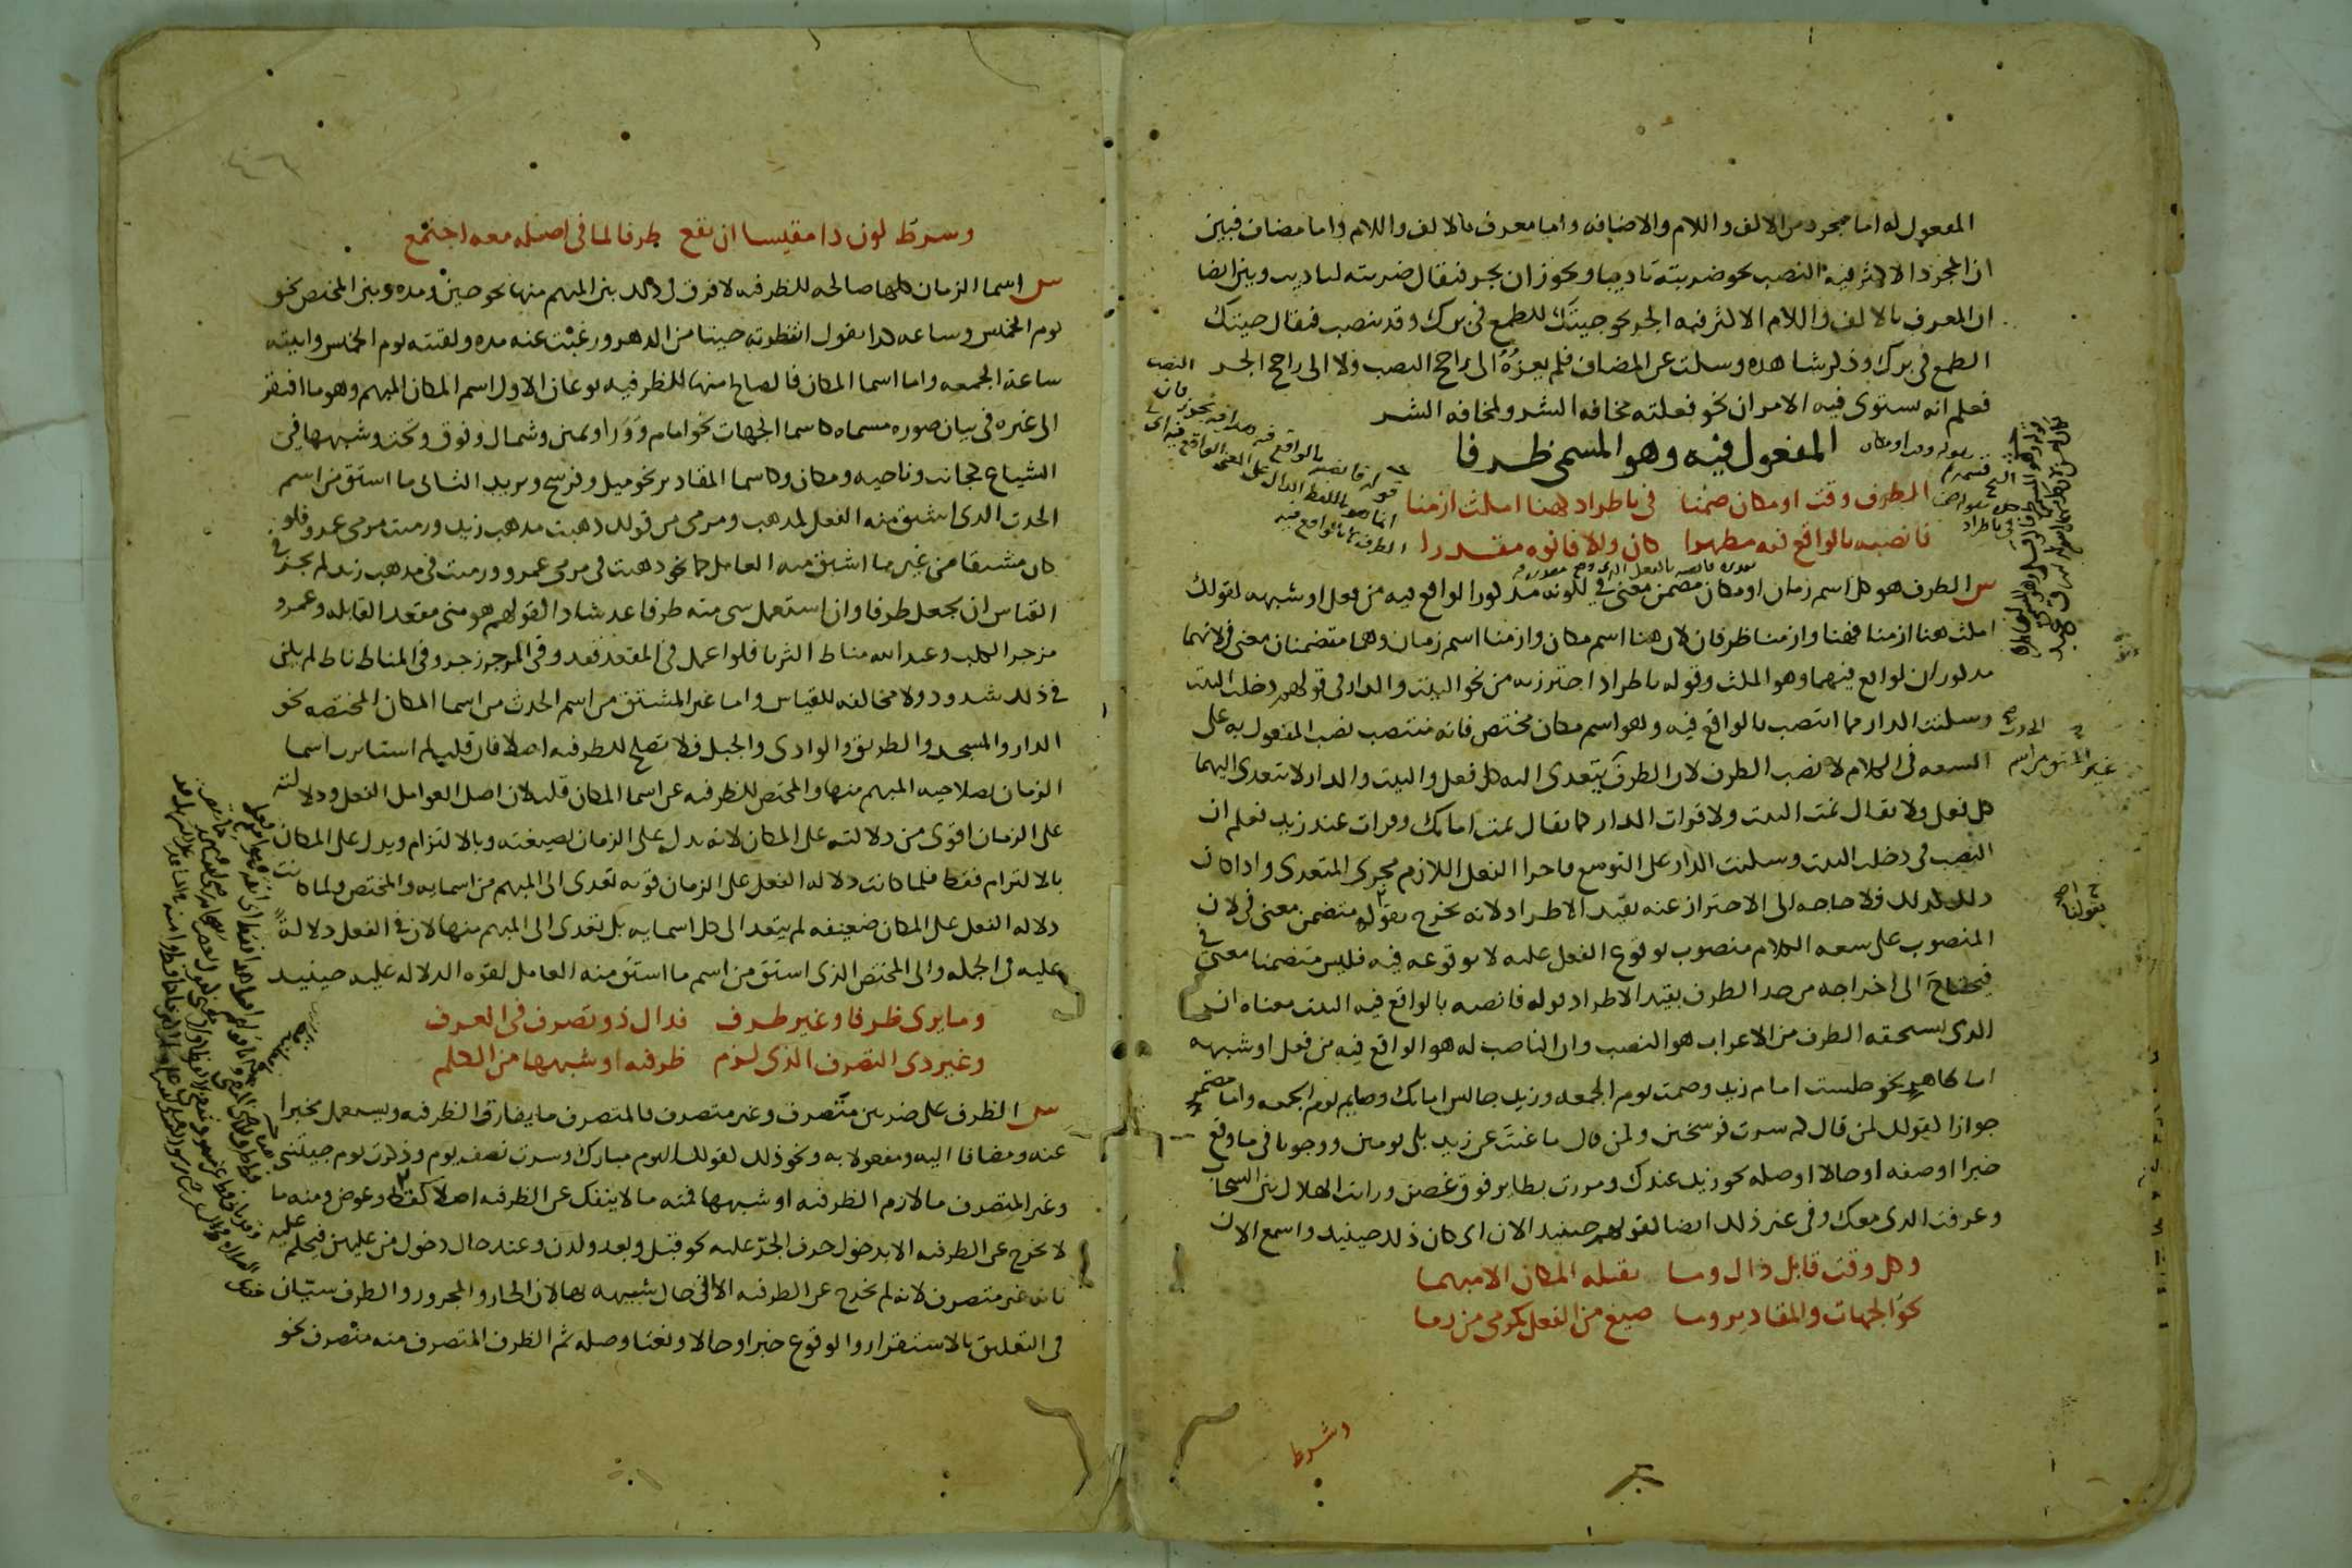 المفعول له اما مجرد من الالف واللام والاضافه واما معرف بالالف واللام واما مضاف فبين
ان المجرد الاكثر فيه النصب نحو ضربته تاديبا ويجوز ان يجر فيقال ضربته لتاديب وبين ايضا
ان المعرف بالالف واللام الاكثر فيه الجر نحو جيتك للطمع في برك وقد ينصب فيقال جيتك
الطمع في برك وذكر شاهده وسكت عن المضاف فلم يعزه الى راجح النصب ولا الى راجح الجر
فعلم انه يستوى فيه الامران نحو فعلته مخافه الشر ولمخافه الشر
المفعول فيه وهو المسمى ظرفا
الظرف وقت او مكان ضمنا في باطراد كهنا امكث ازمنا
فانصبه بالواقع فيه مظهرا كان والا فانوه مقدرا
س الظرف هو كل اسم زمان او مكان مضمن معنى في لكونه مذكورا لواقع فيه من فعل او شبهه كقولك
امكث هنا ازمنا فهنا وازمنا ظرفان لان هنا اسم مكان وازمنا اسم زمان وهما متضمنان معنى في لانهما
مذكوران لواقع فيهما وهو المكث وقوله باطراد احترز به من نحو البيت والدار في قولهم دخلت البيت
وسكنت الدار مما انتصب بالواقع فيه وهو اسم مكان مختص فانه منتصب نصب المفعول به على
السعه في الكلام لا نصب الظرف لان الظرف يتعدى اليه كل فعل والبيت والدار لا يتعدى اليهما
كل فعل ولا يقال نمت البيت ولا قرات الدار كما يقال نمت امامك وقرات عند زيد فعلم ان
النصب في دخلت البيت وسكنت الدار على التوسع واجرا الفعل اللازم مجرى المتعدى واذا كان
ذلك كذلك فلا حاجه الى الاحتراز عنه بقيد الاطراد لانه يخرج بقوله متضمن معنى في لان
المنصوب على سعه الكلام منصوب لوقوع الفعل عليه لا لوقوعه فيه فليس متضمنا معنى في
فيحتاج الى اخراجه من حد الظرف بقيد الاطراد قوله فانصبه بالواقع فيه البيت معناه ان
الذى يستحقه الظرف من الاعراب هو النصب وان الناصب له هو الواقع فيه من فعل او شبهه
اما ظاهر نحو جلست امام زيد وصمت يوم الجمعه وزيد جالس امامك وصايم يوم الجمعه واما مضمر
جوازا كقولك لمن قال كم سرت فرسخين ولمن قال ما غبت عن زيد بلى يومين ووجوبا في ما وقع
خبرا او صفه او حالا او صله نحو زيد عندك ومررت بطاير فوق غصن ورايت الهلال بين السحاب
وعرفت الذى معك وفي غير ذلك ايضا كقولهم حينيد الان اى كان ذلك حينيد واسمع الان
وكل وقت قابل ذاك وما يقبله المكان الا مبهما
نحو الجهات والمقادير وما صيغ من الفعل كمرمى من رمى
وشرط
وشرط كون ذا مقيسا ان يقع ظرفا لما في اصله معه اجتمع
س اسما الزمان كلها صالحه للظرفيه لا فرق في ذلك بين المبهم منها نحو حين ومده وبين المختص نحو
يوم الخميس وساعه كذا تقول انتظرته حينا من الدهر وغبت عنه مده ولقيته يوم الخميس واتيته
ساعة الجمعه واما اسما المكان فالصالح منها للظرفيه نوعان الاول اسم المكان المبهم وهو ما افتقر
الى غيره في بيان صوره مسماه كاسما الجهات نحو امام وورا ويمين وشمال وفوق وتحت وشبهها في
الشياع كجانب وناحيه ومكان وكاسما المقادير نحو ميل وفرسخ وبريد الثانى ما اشتق من اسم
الحدث الذى اشتق منه الفعل كمذهب ومرمى من قولك ذهبت مذهب زيد ورميت مرمى عمرو فلو
كان مشتقا من غير ما اشتق منه العامل كما نحو ذهبت في مرمى عمرو ورميت في مذهب زيد لم يجز في
القياس ان يجعل ظرفا وان استعمل شى منه ظرفا عد شاذا كقولهم هو منى مقعد القابله وعمرو
مزجر الكلب وعبد الله مناط الثريا فلو اعمل في المقعد قعد وفي المزجر زجر وفي المناط ناط لم يكن
في ذلك شذوذ ولا مخالفه للقياس واما غير المشتق من اسم الحدث من اسما المكان المختصه نحو
الدار والمسجد والطريق والوادى والجبل فلا تصلح للظرفيه اصلا فان قلت لم استاثرت اسما
الزمان بصلاحيه المبهم منها والمختص للظرفيه عن اسما المكان قلت لان اصل العوامل الفعل ودلالته
على الزمان اقوى من دلالته على المكان لانه يدل على الزمان بصيغته وبالالتزام ويدل على المكان
بالالتزام فقط فلما كانت دلاله الفعل على الزمان قويه تعدى الى المبهم من اسمايه والمختص ولما كانت
دلاله الفعل على المكان ضعيفه لم يتعد الى كل اسمايه بل تعدى الى المبهم منها لان في الفعل دلالة
عليه في الجمله والى المختص الذى اشتق من اسم ما اشتق منه العامل لقوه الدلاله عليه حينيد
وما يرى ظرفا وغير ظرف فذاك ذو تصرف في العرف
وغير ذى التصرف الذى لزم ظرفيه او شبهها من الكلم
س الظرف على ضربين متصرف وغير متصرف فالمتصرف ما يفارق الظرفيه ويستعمل مخبرا
عنه ومضافا اليه ومفعولا به ونحو ذلك كقولك اليوم مبارك وسرت نصف يوم وذكرت يوم جيتنى
وغير المتصرف ما لازم الظرفيه او شبهها فمنه ما لا ينفك عن الظرفيه اصلا كقط وعوض ومنه ما
لا يخرج عن الظرفيه الا بدخول حرف الجر عليه نحو قبل وبعد ولدن وعند حال دخول من عليهن فيحكم عليه
بانه غير متصرف لانه لم يخرج عن الظرفيه الا الى حال شبيهه بها لان الجار والمجرور والظرف سيان
في التعليق بالاستقرار والوقوع خبرا وحالا ونعتا وصله ثم الظرف المتصرف منه متصرف نحو